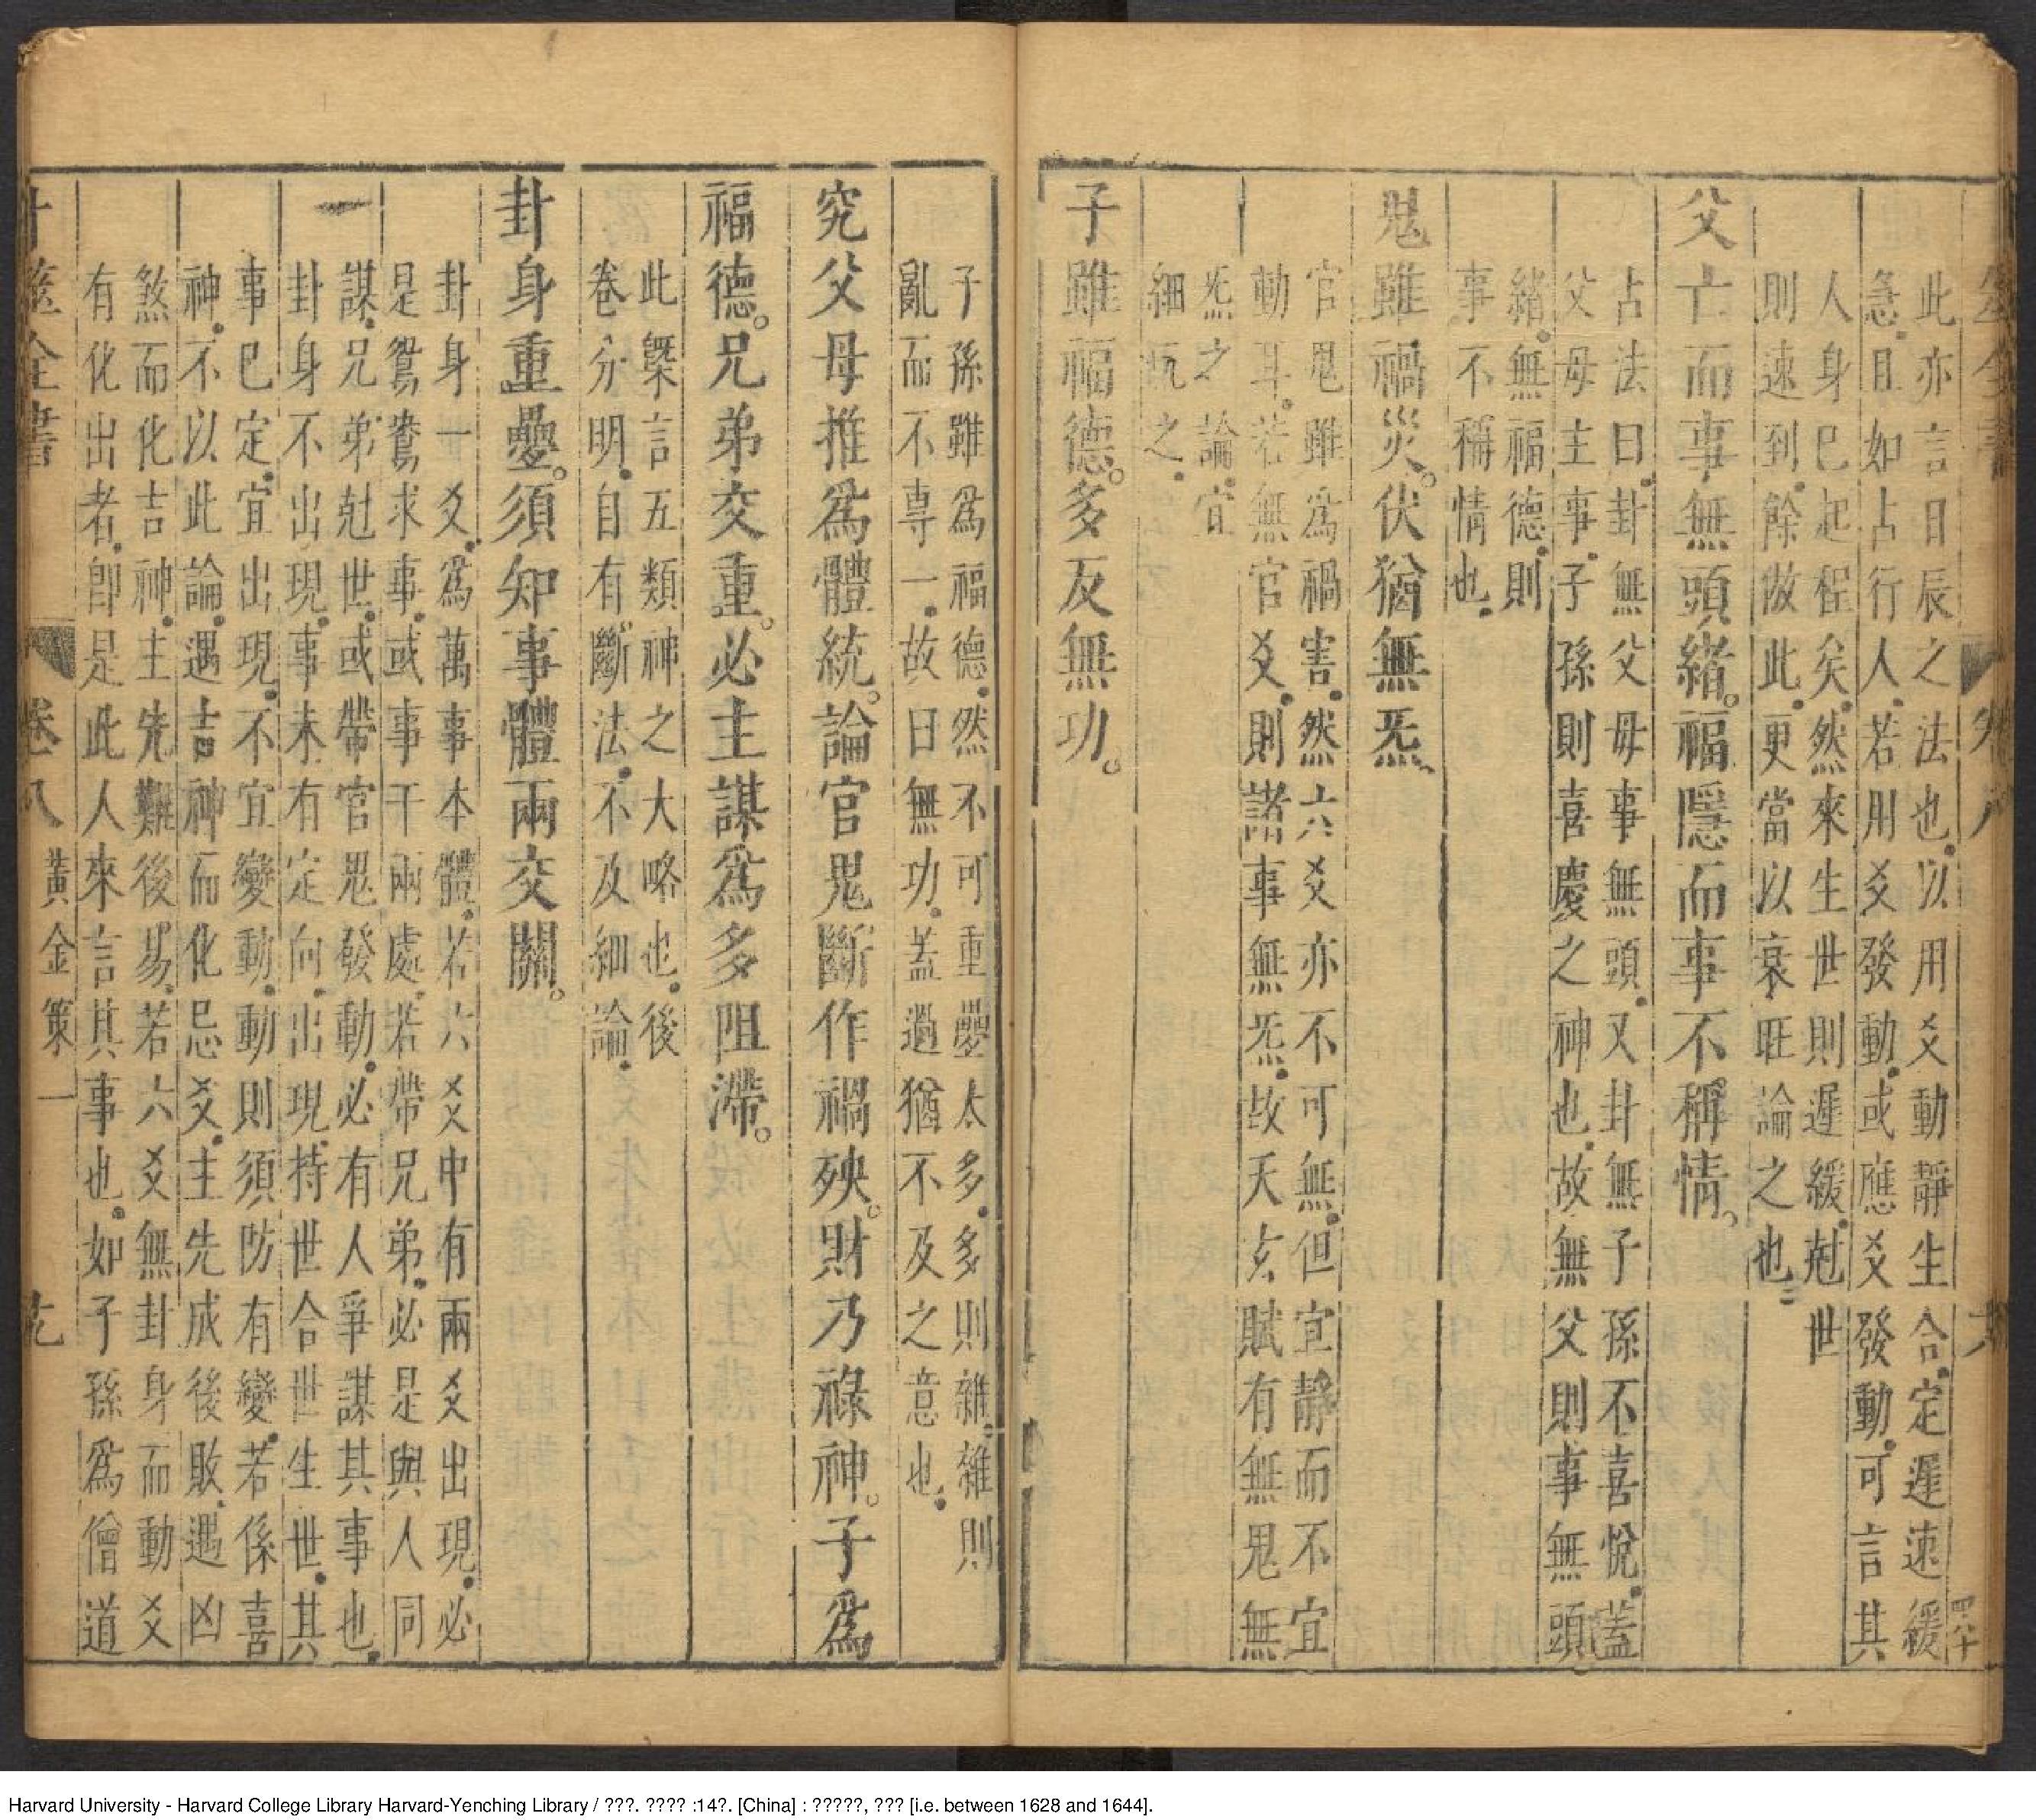 此亦言日辰之法也以用爻動靜生合定遲速緩
急且如占行人若用爻發動或應爻發動可言其
人身已起程矣然來生世則遲緩尅世
則速到餘倣此更當以衰旺論之也
父亡而事無頭緒福隱而事不稱情
占法曰卦無父母事無頭又卦無子孫不喜悅蓋
父母主事子孫則喜慶之神也故無父則事無頭
緒無福德則
事不稱情也
鬼雖禍災伏猶無炁
官鬼雖爲禍害然六爻亦不可無但宜靜而不宜
動耳若無官爻則諸事無炁故天玄賦有無鬼無
炁之論宜
細玩之
子雖福德多反無功
子孫雖爲福德然不可重疊太多多則雜雜則
亂而不專一故曰無功蓋過猶不及之意也
究父母推爲體統論官鬼斷作禍殃財乃祿神子爲
福德兄弟交重必主謀爲多阻滯
此槩言五類神之大略也後
卷分明自有斷法不及細論
卦身重疊須知事體兩交關
卦身一爻爲萬事本體若六爻中有兩爻出現必
是鴛鴦求事或事干兩處若帶兄弟必是與人同
謀兄弟尅世或帶官鬼發動必有人爭謀其事也
卦身不出現事未有定向出現持世合世生世其
事已定宜出現不宜變動動則須防有變若係喜
神不以此論遇吉神而化忌爻主先成後敗遇凶
煞而化吉神主先難後易若六爻無卦身而動爻
有化出者卽是此人來言其事也如子孫爲僧道
卷八 黃金策一